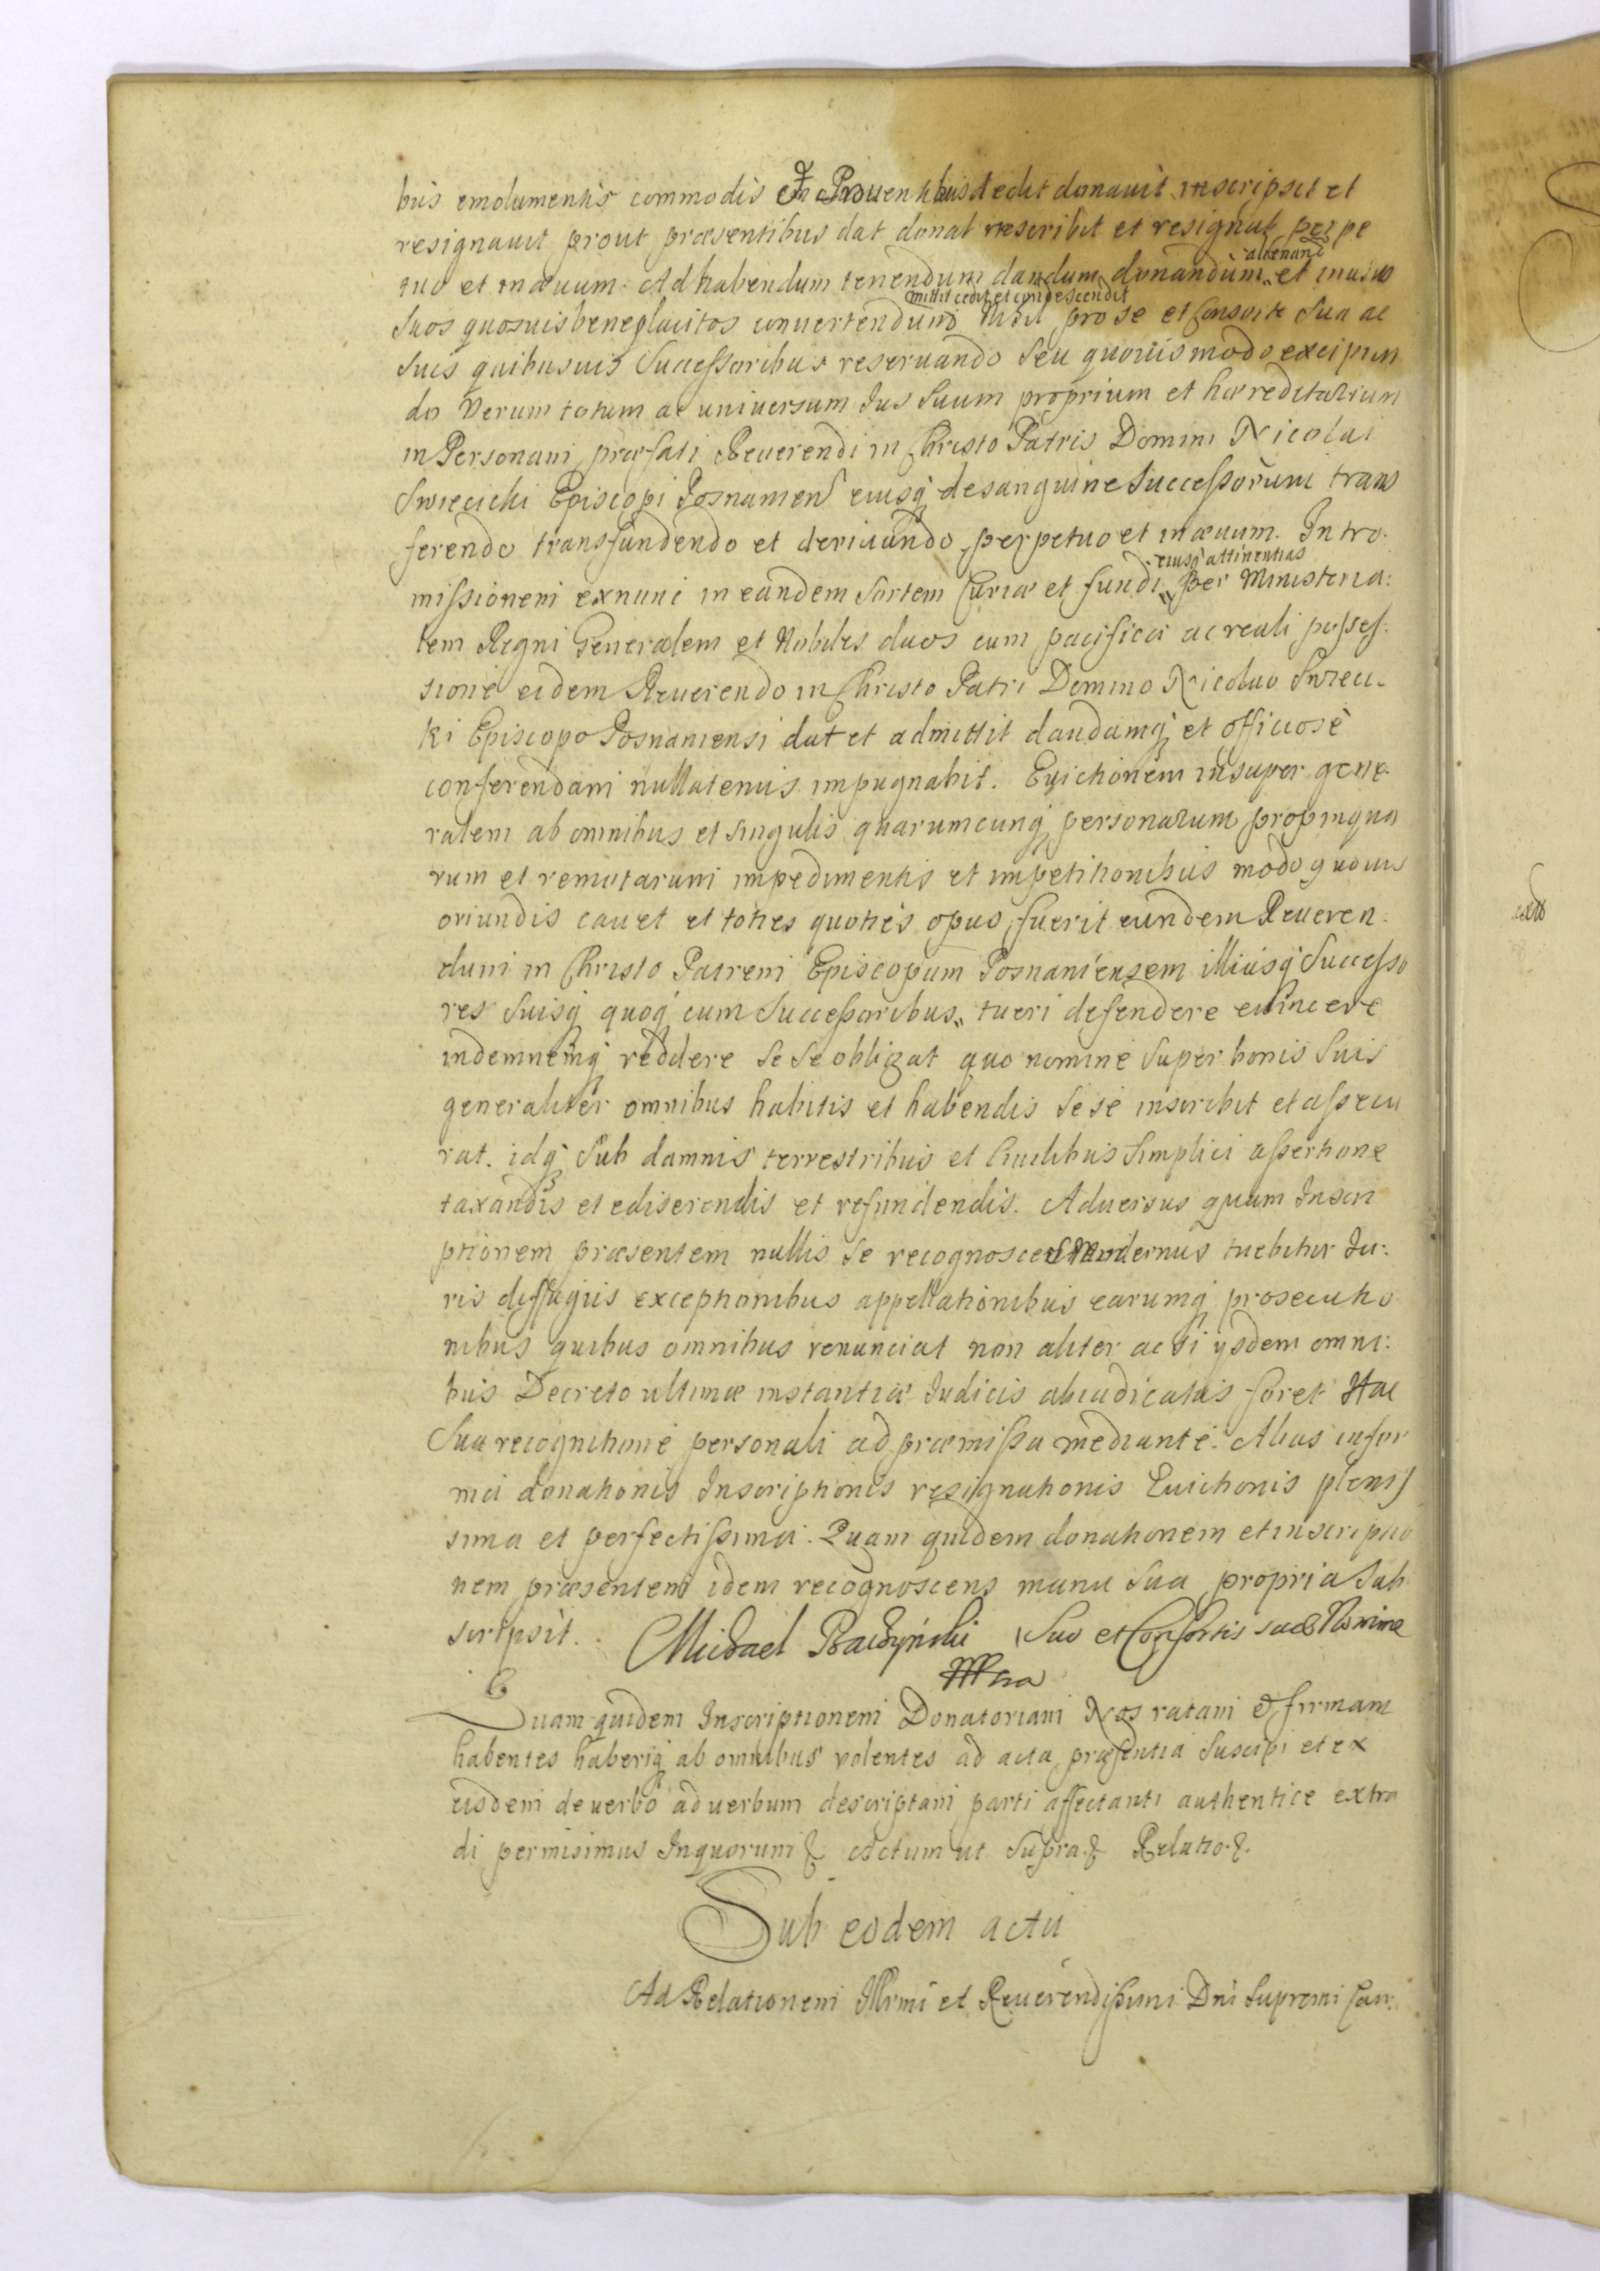 bus emolumentis commodis et Prouentibus dedit donauit inscripsit et
resignauit prout præsentibus dat donat inscribit et resignat perpe
tuo et in æuum. Ad habendum tenendum dandum donandum alienand et in usus
mittit cedit et condescendit
suos quosuis beneplacitos conuertendum Nihil pro se et Consorte sua ac
suis quibusuis Successoribus reseruando seu quouis modo excipien
do Verum totum ac universum Jus suum proprium et hæreditarium
in Personam præfati Reuerendi in Christo Patris Domini Nicolai
Swiecicki Episcopi Posnanien eiusq de sanguine Successorum trans
ferendo transfundendo et deriuando perpetuo et in æuum. Intro:
eiusq attinentias
missionem exnunc in eandem Sortem Curiæ et fundi per Ministeria:
lem Regni Generalem et Nobiles duos cum pacifica ac reali posses:
sione eidem Reuerendo in Christo Patri Domino Nicolao Swieci:
ki Episcopo Posnaniensi dat et admittit dandamq et officiose
conferendam nullatenus impugnabit. Euictionem insuper gene:
ralem ab omnibus et singulis quarumcunq personarum propinqua
rum et remotarum impedimentis et impetitionibus modo quouis
oriundis cauet et toties quoties opus fuerit eundem Reueren:
dum in Christo Patrem Episcopum Posnaniensem illiusq Successo
res suisq quoq cum Successoribus tueri defendere euincere
indemnemq reddere se se obligat quo nomine super bonis suis
generaliter omnibus habitis et habendis se se inscribit et assecu
rat. idq sub damnis terrestribus et simplici assertione
taxandis et ediserendis et refundendis. Aduersus quam Inscri
ptionem præsentem nullis se recognoscens Modernus tuebitur Ju:
ris diffugiis exceptionibus appellationibus earumq prosecutio
nibus quibus omnibus renunciat non aliter ac si ijsdem omni:
bus Decreto ultimæ instantiæ Judicis abiudicatus foret Hac
sua recognitione personali ad præmissa mediante. Alias in for
ma donationis Inscriptionis resignationis Euictionis plenis
sima et perfectissima. Quam quidem donationem et inscriptio
nem præsentem idem recognoscens manu sua propria sub
scripsit. Michael Raczynski Suo et Consortis suae Nomine
mpria
Quam quidem Inscriptionem Donatoriam Nos ratam & firmam
habentes haberiq ab omnibus volentes ad acta præsentia suscipi et ex
eisdem de uerbo ad uerbum descriptam parti affectanti authentice extra
di permisimus In quorum & actum ut supra & Relatio &.
Sub eodem actu
Ad Relationem Illrmi et Reuerendissimi Dni Supremi Can: